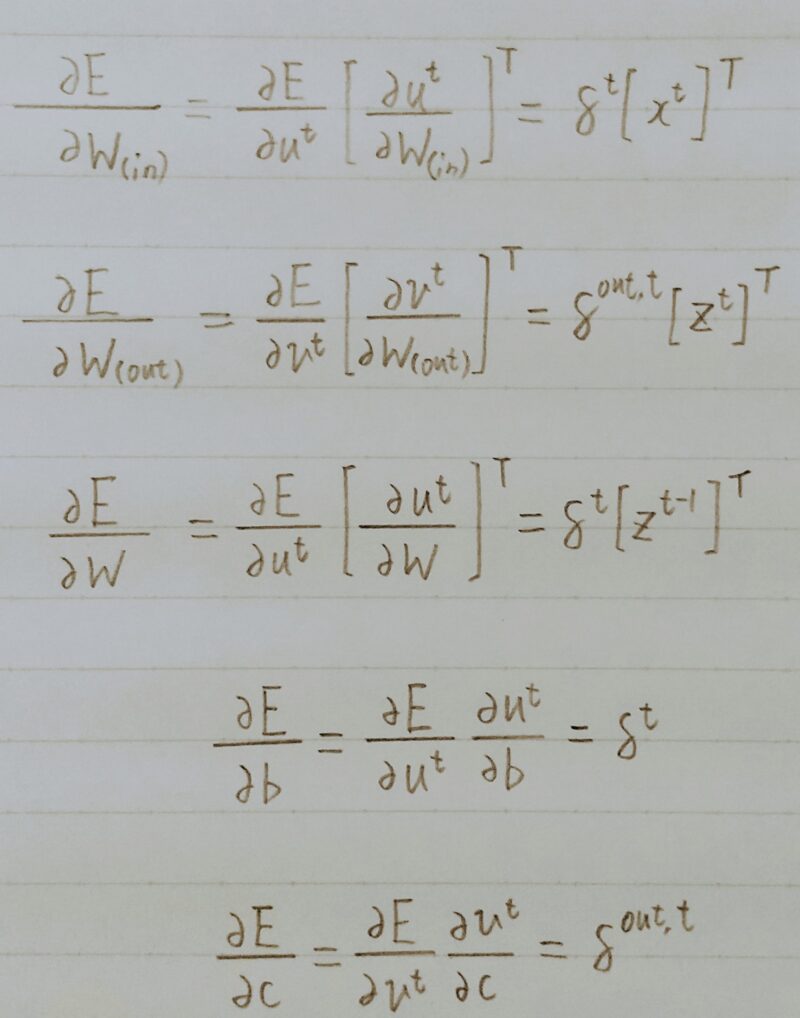 ∂E/∂W(in) = ∂E/∂u^t [∂u^t/∂W(in)]^T = δ^t [x^t]^T
∂E/∂W(out) = ∂E/∂v^t [∂v^t/∂W(out)]^T = δ^{out,t} [z^t]^T
∂E/∂W = ∂E/∂u^t [∂u^t/∂W]^T = δ^t [z^{t-1}]^T
∂E/∂b = ∂E/∂u^t ∂u^t/∂b = δ^t
∂E/∂c = ∂E/∂v^t ∂v^t/∂c = δ^{out,t}